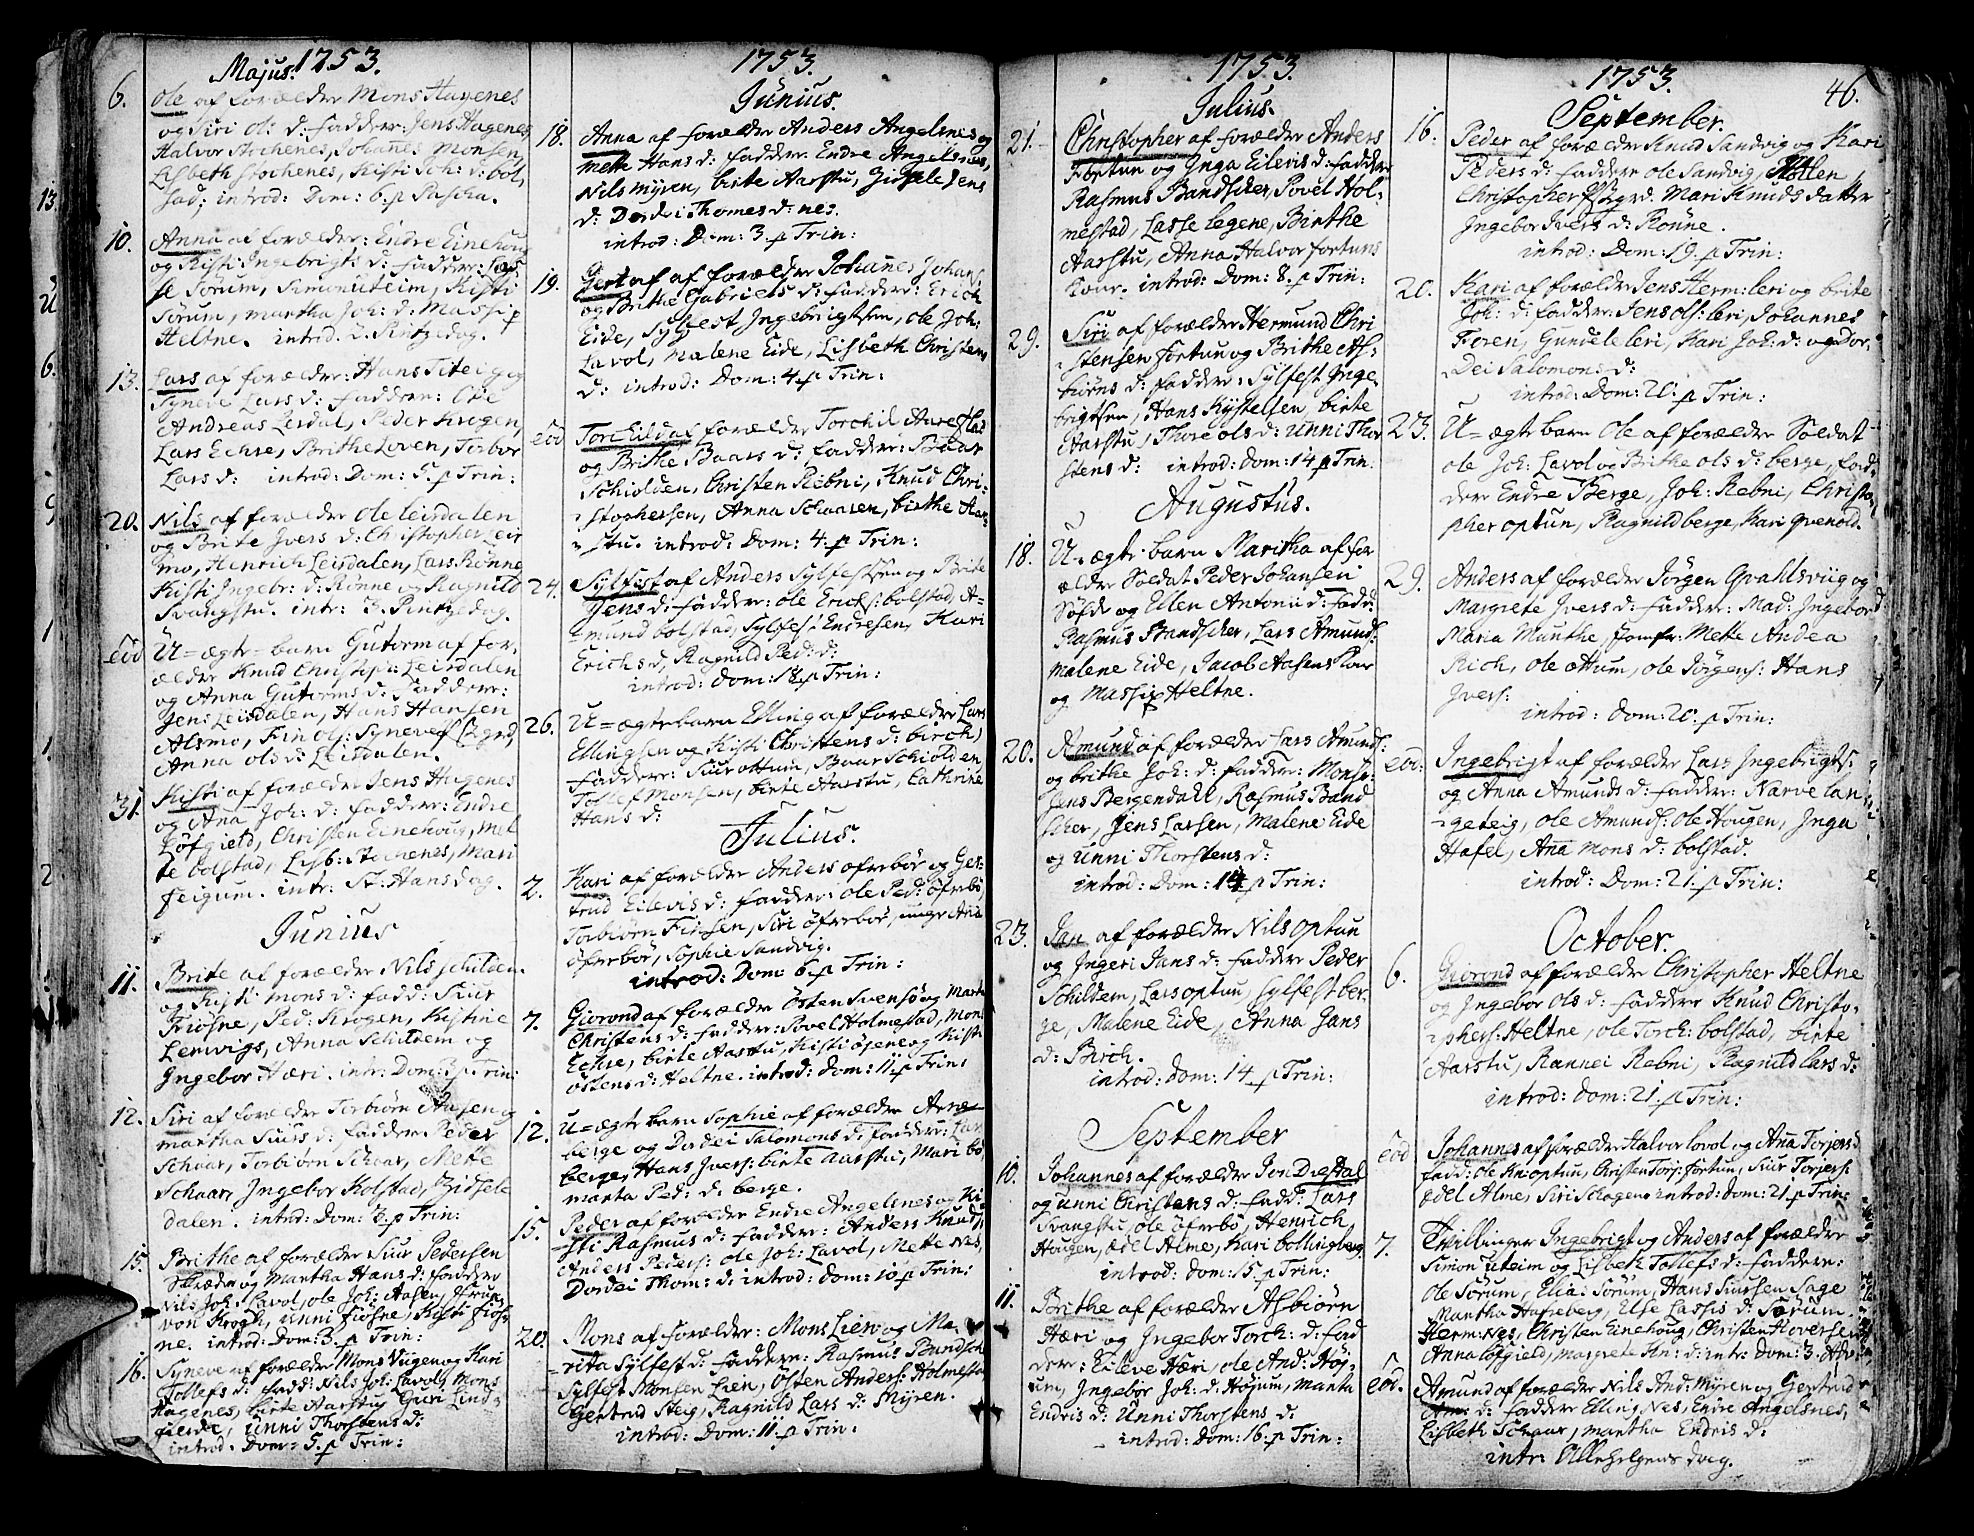 1753.
Majus.
6. Ole af forældre Mons Hagenes
og Siri ol: d: faddere: Jens Hagenes
Halvor Stochenes, Johannes Monsen,
Lisbeth Stochenes, Kisti Joh: d: bol,
stad; introd: Dom: 6. p Pascha.
10. Anna af forældre: Endre Einehoug
og Kisti Ingebrigts d: faddere: Las,
se Sorum, Simon uteim, Kisti
Sorum, martha Joh: d: Massi
Heltne. introd. 2. Pintzedag.
13. Lars af forældre: Hans Titeig og
Syneve Lars d: faddere: Ole
Andreas Lerdal, Peder Krogen,
Lars Echre, Brithe Loven, Torbor
Lars d: introd: Dom: 5. p Trin:
20. Nils af forældre Ole leirdalen
og Brite Ivers d: Christopher Leir
mo, Henrich Leirdalen, Lars Rønne
Kisti Ingebr: d: Rønne og Ragnild
Svangstu. intr: 3. Pintzedag.
eod U=ægte=barn Gutorm af for,
ældre Knud Christop: Leirdalen
og Anna Gutorms d: Faddere:
Jens Leirdalen, Hans Hansen
Alsmo, Fin ol: Syneve
Anna ols d: Leirdalen.
31. Kisti af forældre Jens Hagenes
og Ana Joh: d: faddere: Endre
Løfgield, Christen Einehoug, Met
te bolstad, Lisb: Stochenes, Mari
feigum. intr: St: Hansdag.
Junius
11. Brite af forældre Nils Schilden
og Kisti Mons d: fadd: Siur
Friøsne, Ped: Krogen, Kistine
Lemvigs, Anna Schildem og
Ingebor Hæri. intr: Dom: 3. p Trin:
12. Siri af forældre Torbiørn Aasen og
martha Siurs d: faddere Peder
Schaar, Torbiørn Schaar, Mette
Schaar, Ingebor Kolstad, Gidsele
dalen. introd: Dom: 3. p Trin:
15. Brithe af forældre Siur Pedersen
og Martha Hans d: faddere
Nils Joh: Lavol, ole Joh: Aasen,
von Krogh, unni fiøsne, Kisti fiøs,
ne. introd: Dom: 3. p Trin:
16. Syneve af forældre Mons Viigen og Kari
Tollefs d: fadd: Nils Joh: Lavol, Mons
Hagenes, birte Aarstu, Guri Lind,
fierde, Unni Thorstens d:
introd. Dom: 5. p Trin:
1753.
Junius.
18. Anna af forældre Anders Angelsnes og
Mette Hans d: faddere: Endre Angelsnes,
Nils Myren, birte Aarstu, Gidsele Jens
d: Dordei Thomes d: nes.
introd: Dom: 3. p Trin:
19. Gert af forældre Johanes Johans:
og Brithe Gabriels d: faddere: Erich
Eide, Sylfest Ingebrigtsen, ole Joh:
Lavol, Malene Eide, Lisbeth Christens
d: introd: Dom: 4. p Trin:
eod Torchild af forældre Torchil
og Brithe Baars d: faddere: Baar
Schiolden, Christen Rebni, Knud Chri-
stophersen, Anna Schaasen, birthe Aar-
stu. introd: Dom: 4. p Trin:
24. Sylfest af Anders Sylfestsen og Brite
Jens d: faddere: ole Erichs: bolstad, A=
mund bolstad, Sylfest Endresen, Kari
Erichs d, Ragnild Ped: d:
introd: Dom: p Trin:
26. U=ægte barn Elling af forældre Lars
Ellingsen og Kisti Christens d: birch,
faddere: Siur ottum, Baar Schiolden,
Tollef Monsen, birte Aarstu, Cathrine
Hans d:
Julius.
2. Kari af forældre Anders ofrebør og Ger-
trud Eilevis d: faddere: ole Ped: öfrebø,
Torbiørn Finsen, Siri öfrebør, unge Ana
öfrebør, Sophie Sandvig.
introd: Dom: 6. p Trin:
7. Giørond af forældre Östen Svensø og Mart
Christens d: faddere: Povel Holmestad, Mons
Echre, birte Aarstu, Kisti öisene og Kisti
östens d: Heltne. introd: Dom: 11. p Trin:
12. U=ægte barn Sophie af forældre Arne
berge og Dordei Salomons d: faddere:
berge, Hans Ivers: birte Aarstu, Mari bø
marta Ped: d: berge.
15. Peder af forældre Endre Angelsnes og Ki,
sti Rasmus d: faddere: Anders Knuds,
Anders Peders: ole Joh: Lavol, Mette Nes,
Dordei Thom: d: introd: dom: 10. p Trin:
20. Mons af forældre: Mons Lien og Ma,
rita Sylfest d: faddere: Rasmus
Sylfest Monsen Lien, Östen Anders: Holmestad
Gertrud Steig, Ragnild Lars d: Myren.
introd: Dom: 11. p Trin:
1753.
Julius.
21. Christopher af forældre Anders
Fortun og Inga Eilevis d: faddere
Rasmus Bandscher, Povel Hol-
mestad, Lasse legene, Birthe
Aarstu, Anna Halvor fortuns
Koner. introd: Dom: 8. p Trin:
29. Siri af forældre Hermund Chri
stensen Fortun og Brithe As,
biørns d: faddere: Sylfest Inge,
brigtsen, Hans Kystelsen, birte
Aarstu, Thore ols d: Unni Thor
stens d: introd: Dom: 14 p Trin:
Augustus.
18. U=ægte barn Maritha af for
ældre Soldat Peder Johansen
Sølde og Ellen Antonii d: fadd:
Rasmus Bandscher, Lars Amunds:
malene Eide, Jacob Aasens Koner
og Massi Heltne.
20. Amund af forældre Lars Amunds:
og brithe Joh: d: faddere: Monsr
Jens Bergendahl, Rasmus Band
scher, Jens Larsen, Malene Eide
og Unni Thorstens d:
introd: Dom: 14 p Trin:
23. Jan af forældre Nils optun
og Ingeri Jans d: faddere Peder
Schildem, Lars optun, Sylfest ber,
ge, Malene Eide, Anna Jans
d: Birch.
introd: dom: 14. p Trin:
September
10. Johannes af forældre Jon Diøstal
og unni Christens d: fadd: Lars
Svangstu, ole öfrebø, Henrich
Hougen, ædel Alme, Kari bolling berg.
introd: dom: 15. p Trin:
11. Brithe af forældre Asbiørn
Hæri og Ingebor Torch: d: fad
dere: Eileve Hæri, ole And: Höy,
um, Ingebør Joh: d: Høium, Manta
Endris d: Unni Thorstens d:
introd: dom: 16. p Trin:
1753. 46.
September.
16. Peder af forældre Knud Sandvig og Kari
Peders d: faddere ole Sandvig,
Christopher Mari Knuds datter
Ingebor Ivers d: Rönne.
introd: Dom: 19. p Trin:
20. Kari af forældre Jens Herm: leri og brite
Joh: d: faddere: Jens ols: leri, Johannes
Foren, Gundele leri, Kari Joh: d: og dor,
Dei Salomons d:
introd: Dom: 20: p Trin:
23. U=ægte barn Ole af forældre Soldat
ole Joh: Lavol og Brithe ols d: berge, fad,
dere Endre Berge, Joh: Rebni, Christo,
pher optun, Ragnild berge, Kari Qvenold.
29. Anders af forældre Jørgen Qvahlsviig og
Margrete Ivers d: faddere: Mad: Ingebor
Maria Munthe, Jomfr: Mette Andea
Rich, ole ottum, ole Jørgens: Hans
Ivers:
introd: Dom: 20. p Trin:
eod: Ingebrigt af forældre Lars Ingebrigts:
og Anna Amunds d: faddere: Narve lan,
geteig, ole Amunds: ole Hougen, Inga
Hafel, Ana Mons d: bolstad.
introd: Dom: 21. p Trin:
October.
6. Giørond af forældre Christopher Heltne
og Ingebor ols d: faddere Knud Christo,
phers: Heltne, ole Torch: bolstad, birte
Aarstu, Rannei Rebni, Ragnild lars d:
introd: dom: 21. p Trin:
eod Johannes af forældre Halvor lovol og Ana Torjers d:
fadd: ole Kn: optun, Christen Torj: fortun, Siur Torjers:
ædel Alme, Siri Schagen introd: dom: 21. p Trin:
7. Tvillinger Ingebrigt og Anders af forældre
Simon uteim og Lisbeth Tollefs d: faddere:
ole Sorum, Elia: Sorum, Hans Siursen Sage
Martha Hafreberg, Else Lassis d: Sorum.
Herm: Nes, Christen Einehoug, Christen Hoversen
Anna Løfgield, Margrete An: d: intr: Dom: 3. Adv:
eod. Amund af forældre Nils And: Myren og Gertrud
Am: d: faddere Elling Nes, Endre Angelsnes,
Lisbeth Schaar, martha Endris d:
intr: Allehelgens dag.